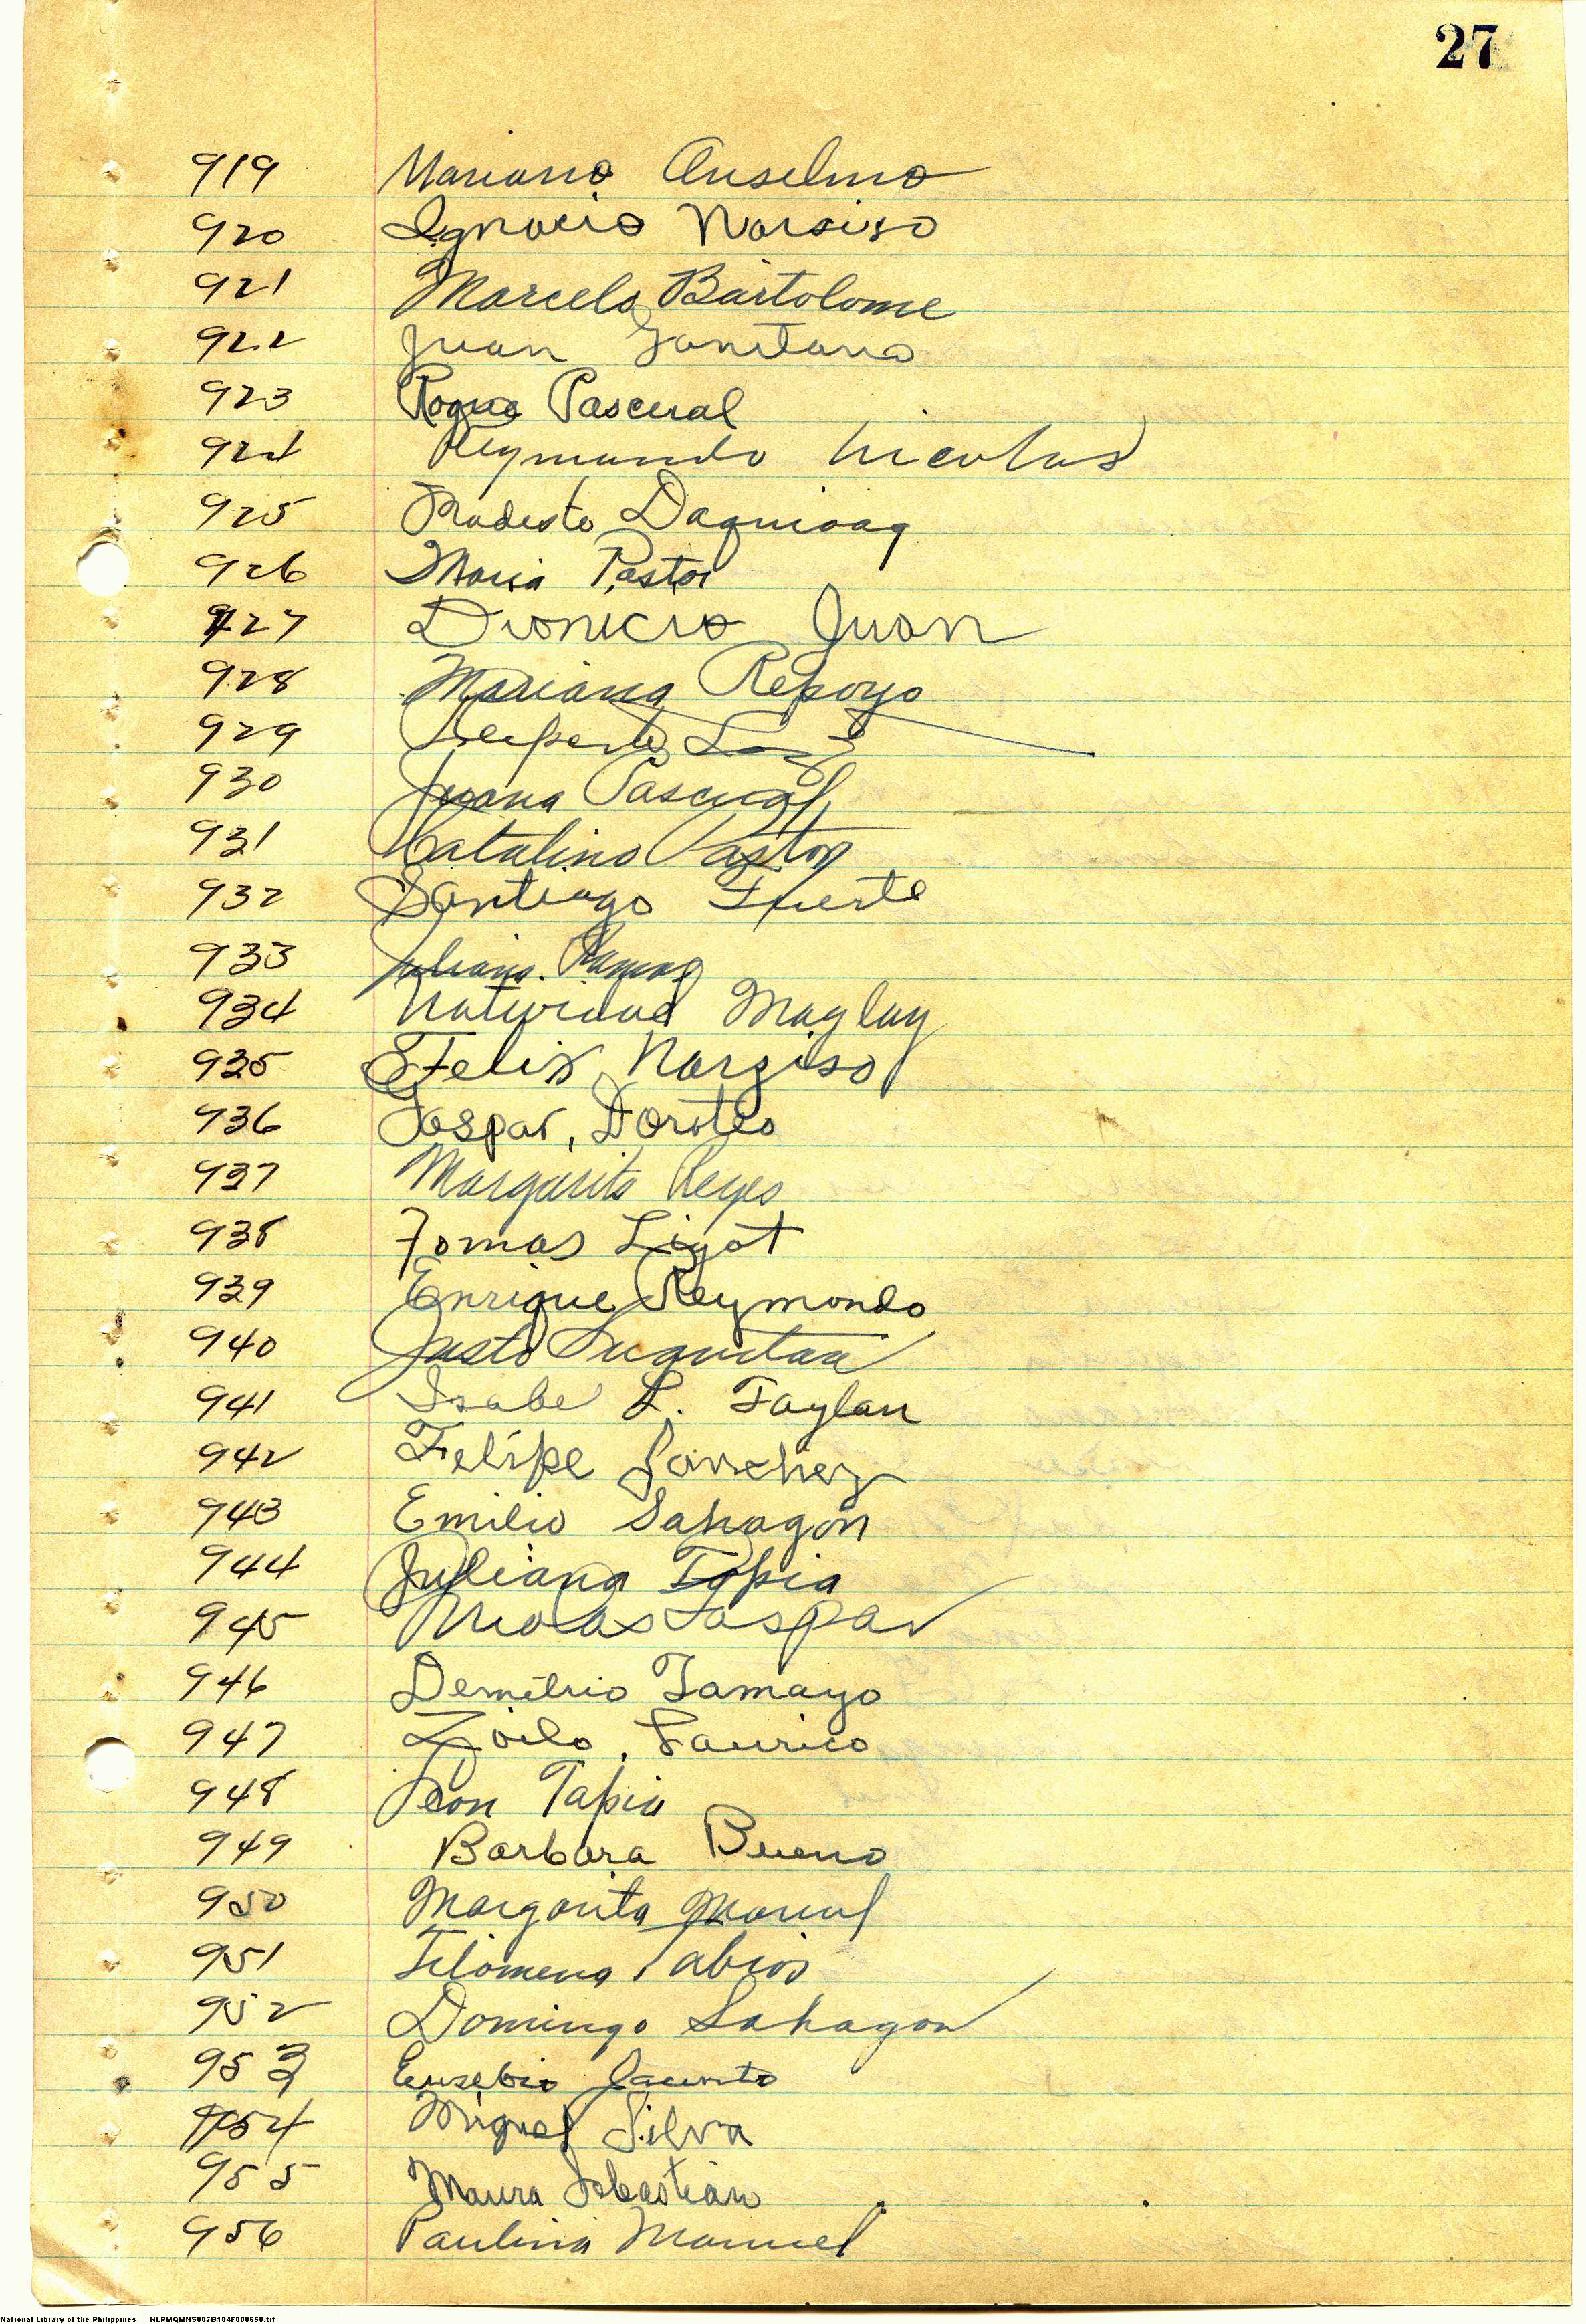 27
919 Mariano Anselmo
920 Ignacio Narsiso
921 Marcelo Bartolome
922 Juan
923 Roque Pascual
924 Reymundo Nicolas
925 Modesto Daquioag
926 Maria Pastor
927 Dionicio Juan
928 Mariana Repoyo
929
930 Juana Pascual
931 Catalino Pastor
932 Santiago Fuerte
933 Juliana Ramos
934 Natividad Maglay
935 Felix Narziso
936 Gaspar, Doroteo
937 Margarita Reyes
938 Tomas Ligot
939 Enrique Reymondo
940 Justo
941 Isabel L. Taylan
942 Felipe Sanchez
943 Emilio Sahagon
944 Juliana Tapia
945 Nicolas Gaspar
946 Demetrio Tamayo
947 Zoilo, Laurico
948 Leon Tapia
949 Barbara Bueno
950 Margarita Manuel
951 Filomena Tabios
952 Domingo Sahagon
953 Eusebio Jacinto
954 Miguel Silva
955 Maura Sebastian
956 Paulina Manuel
National Library of the Philippines NLPMQMNS007B104F000658.tif